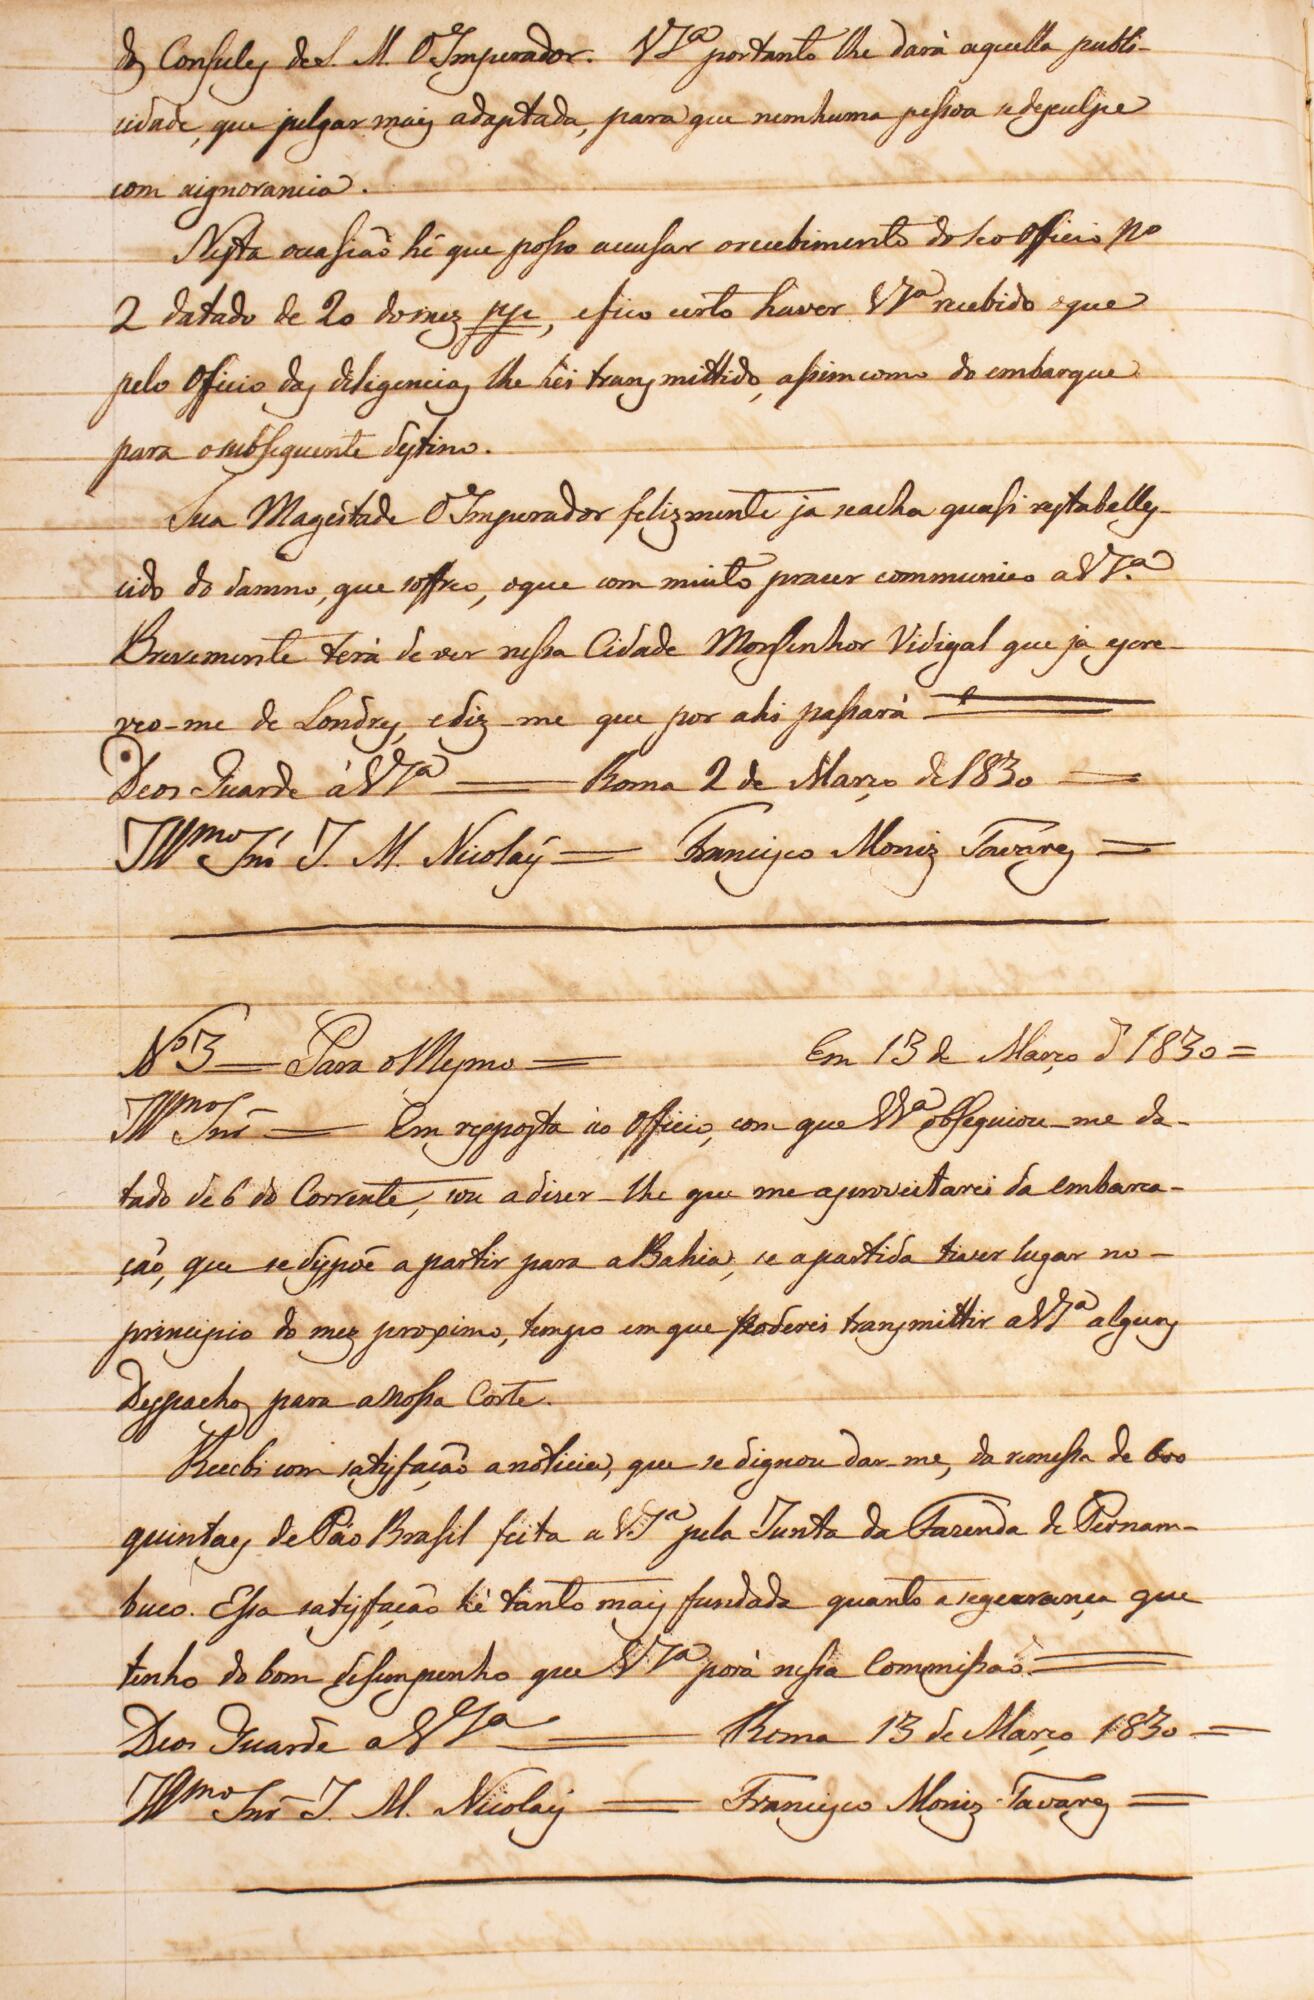 dos Consules de S. M. O Imperador. V Sª portanto lhe dará aquella publi-
cidade, que julgar mais adaptada, para que nemhuma pessoa se desculpe
com aignorancia.
Nesta occasião hé que posso accusar orecebimento do seo Officio Nº
2 datado de 20 domez ppe, efico certo haver V Sª recebido oque
pelo Officio das diligencias lhe hei transmittido, assimcomo do embarque
para osubsequente destino.
Sua Magestade O Imperador felizmente ja seacha quasi restabelles-
cido do damno, que soffreo, oque com muito prazer communico a V Sª.
Brevemente terá de ver nessa Cidade Monsenhor Vidigal que ja escre-
veo-me de Londres, ediz-me que por ahi passará
Deos Guarde á V Sª = Roma 2 de Março de 1830 =
Illmo Snr J. M. Nicolaÿ = Francisco Moniz Tavares =
Nº 3 = Para o Mesmo = Em 13 de Março d' 1830 =
Illmo Snr = Em resposta ao Officio, com que V Sª obsequiou-me da-
tado de 6 do Corrente, sou adizer-lhe que me aproveitarei da embarca-
ção, que sedispoẽ apartir para aBahia, se apartida tiver lugar no-
principio do mez proximo, tempo em que poderei transmittir a V Sª alguns
Despachos para anossa Corte.
Recebi com satisfação anoticia, que se dignou dar-me, da remessa de 600
quintaes de Páo Brasil feita a V Sª pela Junta da Fazenda de Pernam-
buco. Essa satisfação hé tanto mais fundada quanto a segurança que
tenho do bom desempenho que V Sª porá nessa Commissão =
Deos Guarde a V Sª = Roma 13 de Março 1830 =
Illmo Snr J. M. Nicolaÿ = Francisco Moniz Tavares =